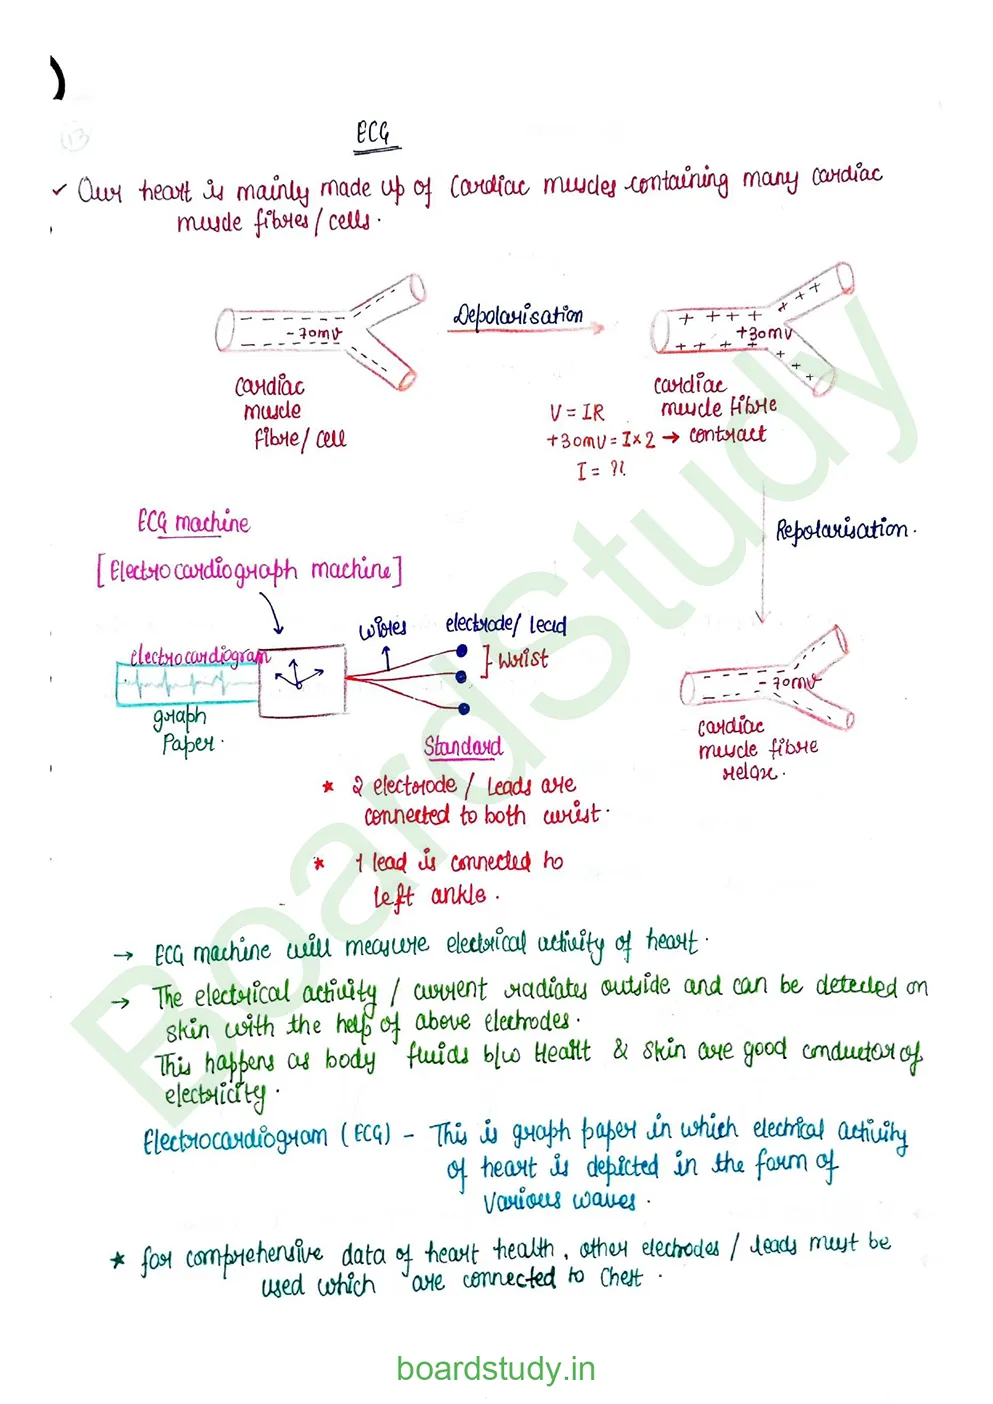 13
ECG
✓ Our heart is mainly made up of Cardiac muscles containing many cardiac
muscle fibres/cells.
-70mv
Depolarisation
+30mv
cardiac
muscle
fibre/cell
cardiac
muscle fibre
contract
V = IR
+30mv = I×2 →
I = ??
Repolarisation.
ECG machine
[Electrocardiograph machine]
wires
electrode/ Lead
electrocardiogram
} wrist
-70mv
graph
Paper.
cardiac
muscle fibre
relax.
Standard
* 2 electrode / Leads are
connected to both wrist.
* 1 lead is connected to
Left ankle.
→ ECG machine will measure electrical activity of heart.
→ The electrical activity / current radiates outside and can be detected on
skin with the help of above electrodes.
This happens as body fluids b/w Heart & Skin are good conductor of
electricity.
Electrocardiogram (ECG) - This is graph paper in which electrical activity
of heart is depicted in the form of
various waves.
* for comprehensive data of heart health, other electrodes / leads must be
used which are connected to Chest.
BoardStudy
boardstudy.in